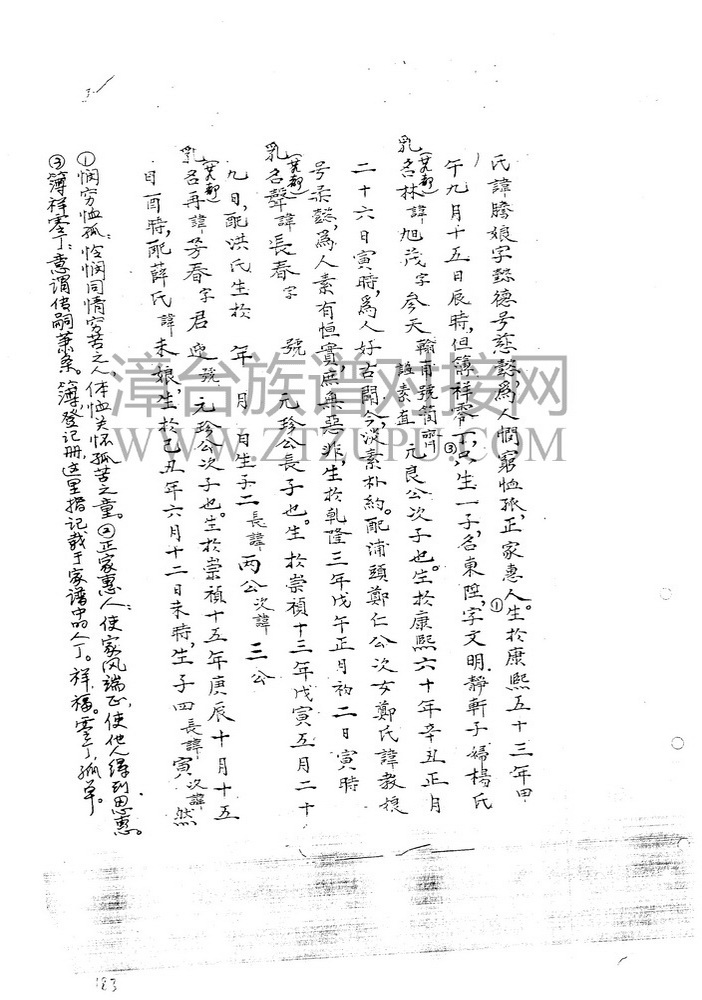 氏諱騰娘字懿德号慈懿,為人憫窮恤孤,正家惠人。生於康熙五十三年甲
午九月十五日辰時,但簿祥零丁,只生一子,名東陞,字文明.靜軒子婦楊氏
③
①
乳名林諱旭茂字參天 諡素直 元良公次子也。生於康熙六十年辛丑正月
二十六日寅時,為人好古聞今,淡素朴約。配浦頭鄭仁公次女鄭氏諱教娘
号柔懿,為人素有恒實,庶無惡非,生於乾隆三年戊午正月初二日寅時
乳名聲諱長春字 號 元珍公長子也。生於崇禎十三年戊寅五月二十
九日,配洪氏生於 年 月 日生子二長諱兩公次諱三公
乳名再諱芳春字君 號 元珍公次子也。生於崇禎十五年庚辰十月十五
日酉時,配薛氏諱未娘,生於己丑年六月十二日未時,生子四長諱寅次諱然
①悯穷恤孤:怜悯同情穷苦之人,体恤关怀孤苦之童。②正家惠人:使家风端正,使他人得到恩惠。
③簿祥零丁:意谓传嗣萧条。簿,登记册,这里指记载于家谱中的人丁。祥,福。零丁,孤单。
漳台族谱对接网
WWW.ZTZUPU.COM
183